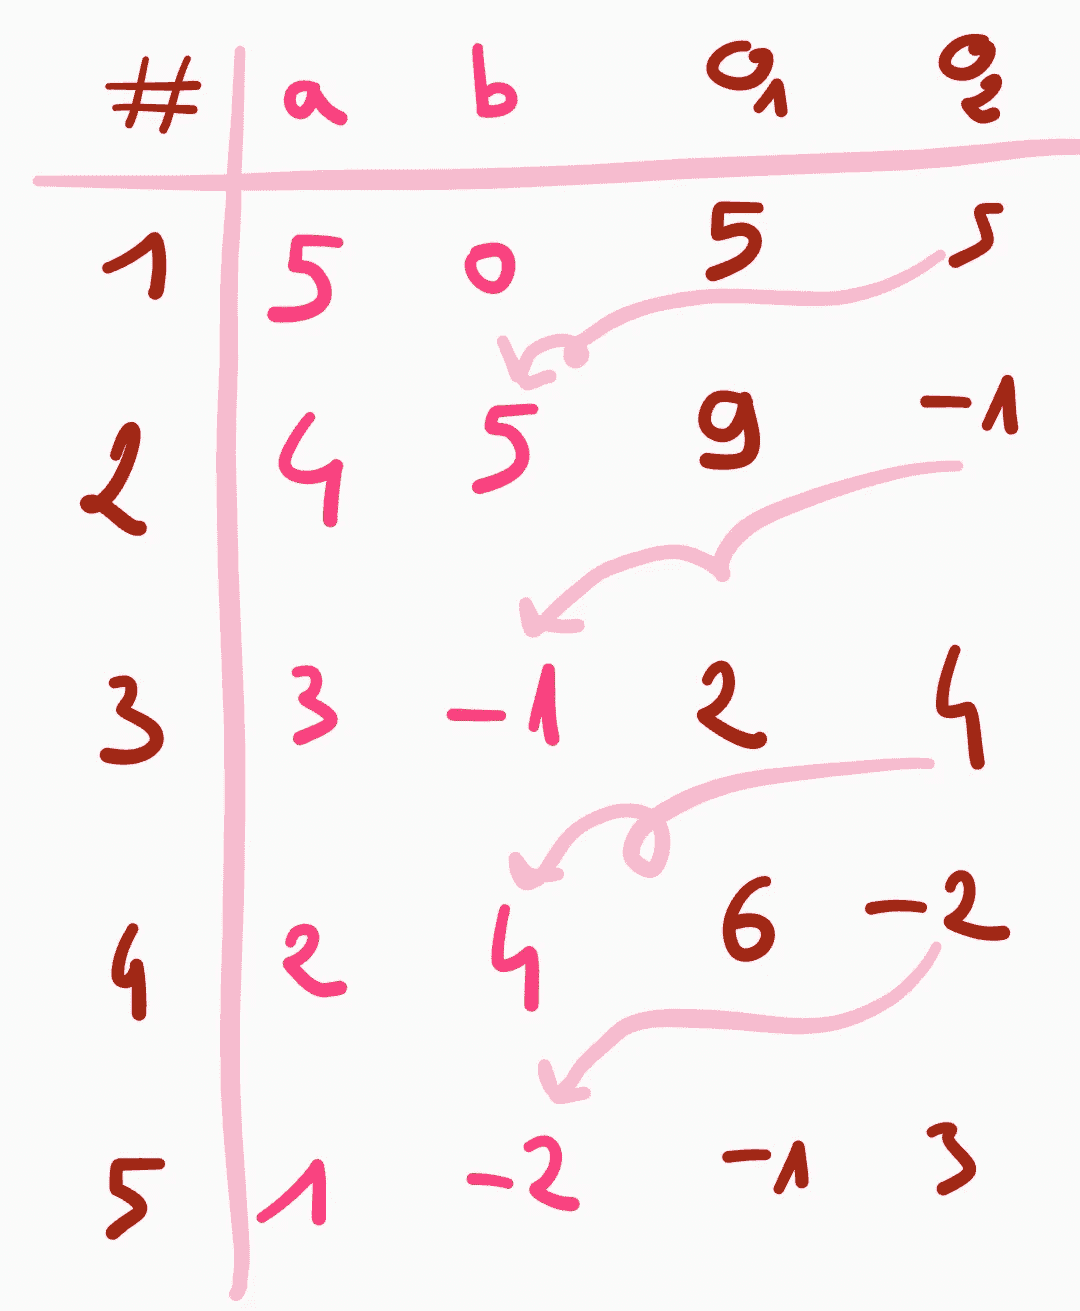 # a b O₁ O₂
1 5 0 5 5
2 4 5 9 -1
3 3 -1 2 4
4 2 4 6 -2
5 1 -2 -1 3